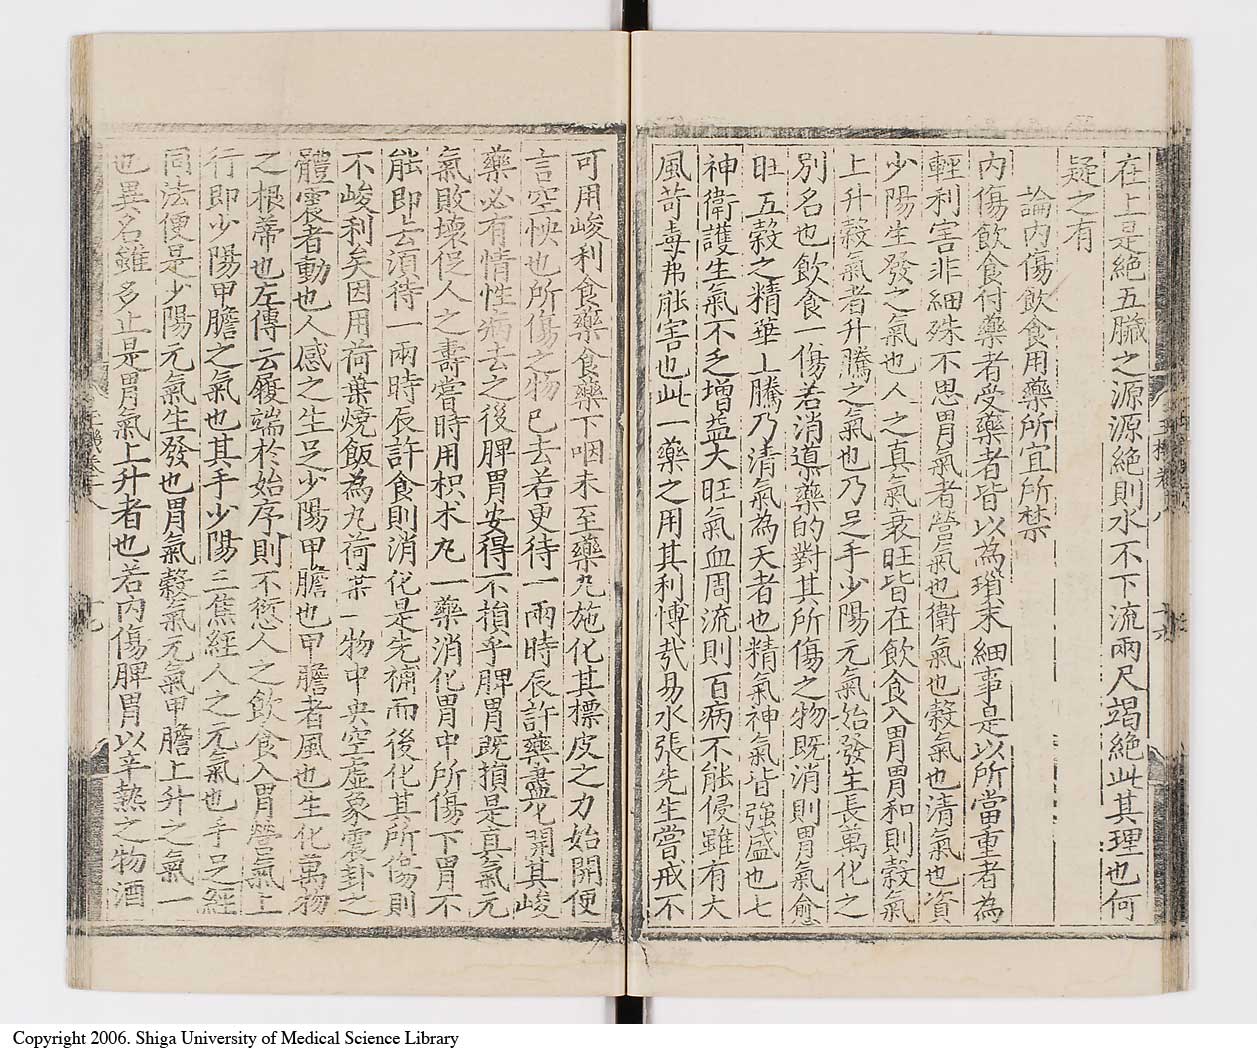 在上是絶五臟之源源絶則水不下流兩尺竭絶此其理也何
疑之有
論內傷飲食用藥所宜所禁
內傷飲食付藥者受藥者皆以為瑣末細事是以所當重者為
輕利害非細殊不思胃氣者營氣也衛氣也穀氣也清氣也資
少陽生發之氣也人之真氣衰旺皆在飲食入胃胃和則穀氣
上升穀氣者升騰之氣也乃足手少陽元氣始發生長萬化之
別名也飲食一傷若消導藥的對其所傷之物既消則胃氣愈
旺五穀之精華上騰乃清氣為天者也精氣神氣皆強盛也七
神衛護生氣不乏增益大旺氣血周流則百病不能侵雖有大
風苛毒弗能害也此一藥之用其利博哉易水張先生嘗戒不
可用峻利食藥食藥下咽未至藥丸施化其標皮之力始開便
言空快也所傷之物已去若更待一兩時辰許藥盡化開其峻
藥必有情性病去之後脾胃安得不損乎脾胃既損是真氣元
氣敗壞促人之壽當時用枳术丸一藥消化胃中所傷下胃不
能即去須待一兩時辰許食則消化是先補而後化其所傷則
不峻利矣因用荷葉燒飯為丸荷葉一物中央空虛象震卦之
體震者動也人感之生足少陽甲膽也甲膽者風也生化萬物
之根蒂也左傳云履端於始序則不愆人之飲食入胃營氣上
行即少陽甲膽之氣也其手少陽三焦經人之元氣也手足經
同法便是少陽元氣生發也胃氣穀氣元氣甲膽上升之氣一
也異名雖多止是胃氣上升者也若內傷脾胃以辛熱之物酒
Copyright 2006. Shiga University of Medical Science Library